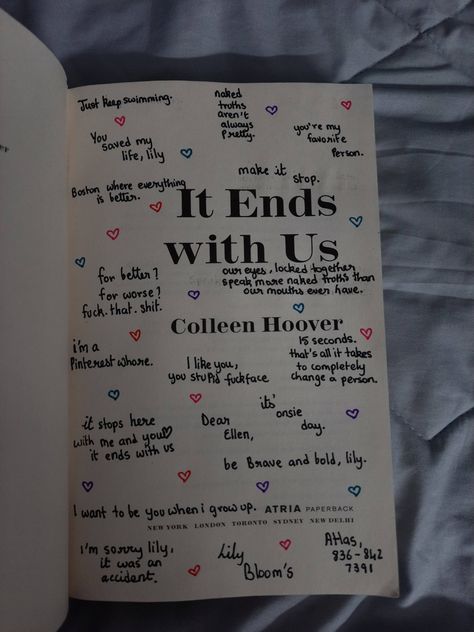 Just keep swimming.
naked
truths
aren't
always
pretty.
You
saved my
life, lily
you're my
favorite
person.
make it
stop.
Boston where everything
is better.
It Ends
with Us
for better?
for worse?
fuck. that. shit.
our eyes, locked together
speak more naked truths than
our mouths ever have.
Colleen Hoover
i'm a
Pinterest whore.
I like you,
you stupid fuckface
15 seconds.
that's all it takes
to completely
change a person.
its'
onsie
day.
it stops here
with me and you
it ends with us
Dear
Ellen,
be Brave and bold, lily.
I want to be you when i grow up.
ATRIA PAPERBACK
NEW YORK LONDON TORONTO SYDNEY NEW DELHI
i'm sorry lily,
it was an
accident.
Lily
Bloom's
Atlas,
836-842
7391